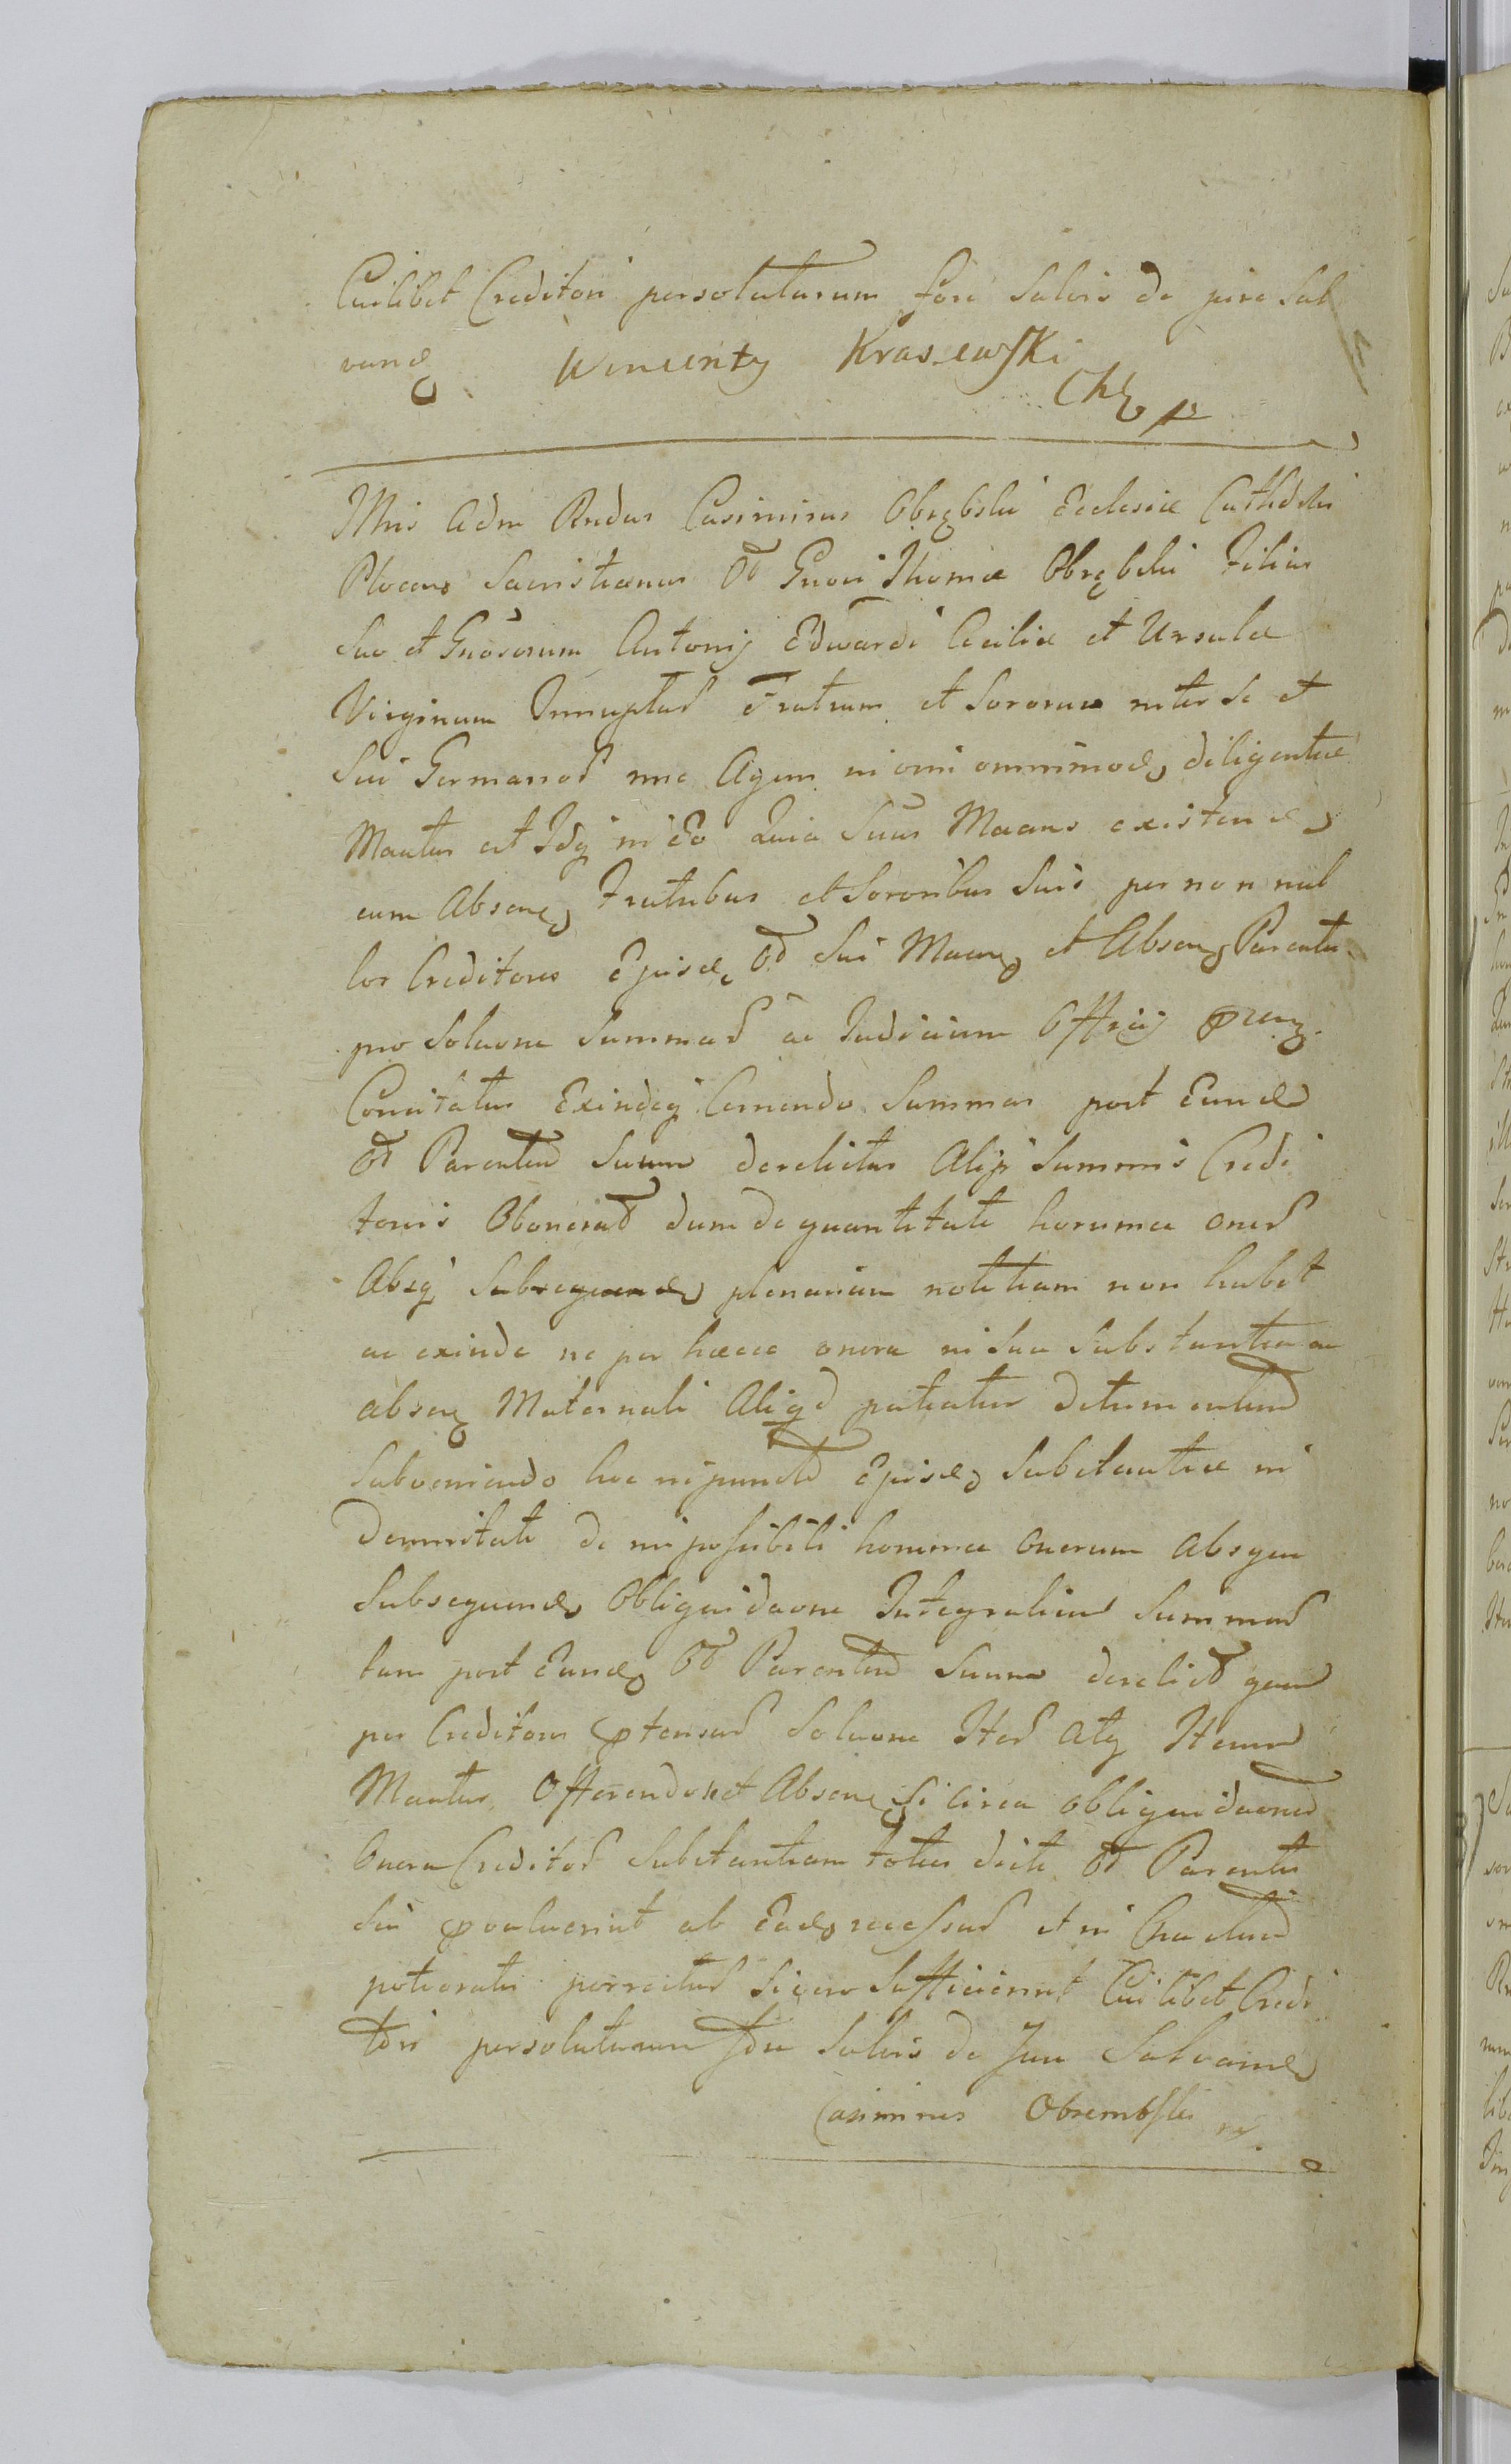 Cuilibet Creditori persoluturum fore Salvis de jure Sal
vand
Wincenty Kraszewski
Illris Adm Rndus Casimirus Obrębski Ecclesiæ Cathdlis
Plocens Sacristianus Od Gnosi Thomæ Obrębski Filius
Suo et Gnosorum Antonij Edwardi Cæciliæ et Ursulæ
Virginum Innuptar Fratrum et Sororum inter se et
Sui Germanor nne Agen in omi omnimod diligentiæ
Mantus est Idq in Eo Quia Suus Maans existend
cum Absend Fratribus et Sororibus Suis per non nul
los Creditores Ejusd Od Sui Maan et Absen Parentis
pro Soluone Summar ac Judicium Officij praen
Concitatus Exindeq Cernendo Summas post Eund
Od Parentem Suum derelictas Alijs Summis Credi
toris Obonerat dum de quantitate horumce oner
Absq Subsequend plenariam notitiam non habet
ac exinde ne per hæcce onera in Sua Substantia ac
absen Maternali Aliqd patiatur detrimentum
Subveniendo hoc in puncto Ejusd Substantiæ in
demnitati de impossibili horumce Onerum absque
Subsequend Obliquidaone Integralium Summar
tam post Eund Od Parentem Suum derelict quam
per Creditores prtensar Soluone Iter Atq Iterum
Mantus Offerendo et Absen Si circa obliquidaonem
Onera Creditor Substantiam totius dicti Od Parentis
Sui prvaluerint ab Ead recessur et in
potioratis porrectur Si vero Sufficierint Cuilibet Credi
tori persoluturum fore Salvis de Jure Salvand
Casimirus Obrembski